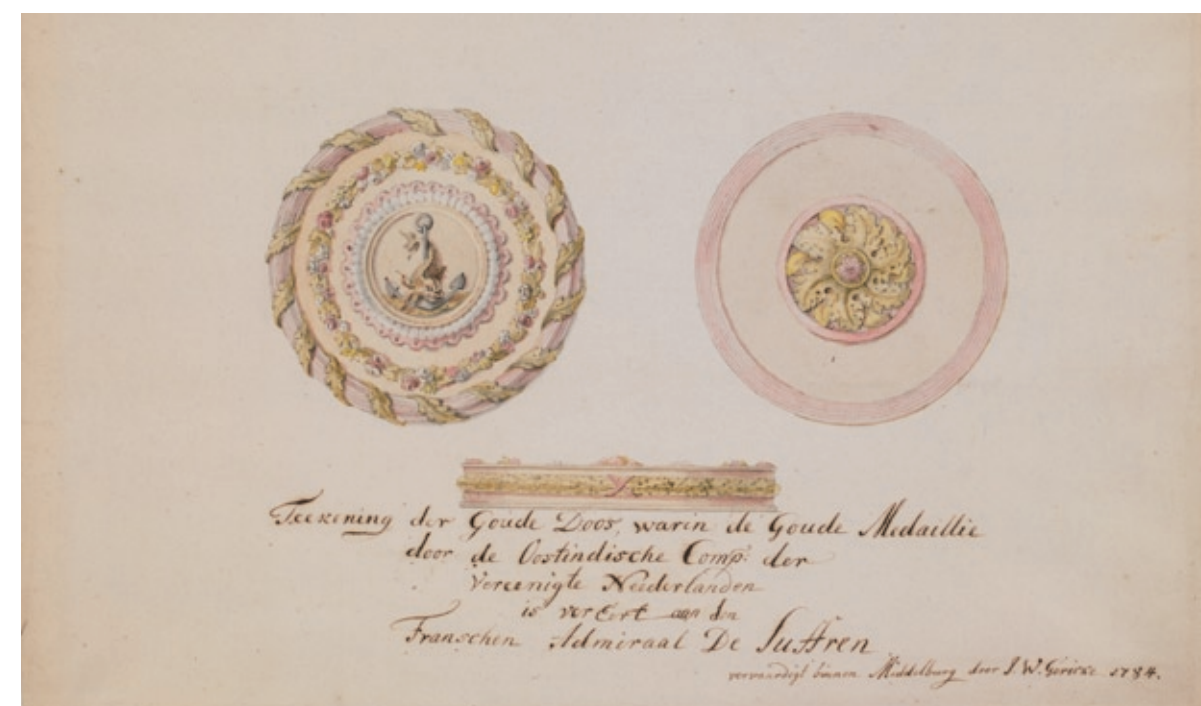 Teekening der Goude Doos, warin de Goude Medaillie
door de Oostindische Comp: der
Vereenigte Neederlanden
is vereert aan den
Franschen Admiraal De Suffren
vervaardigt binnen Middelburg door J. W. Gericke 1784.